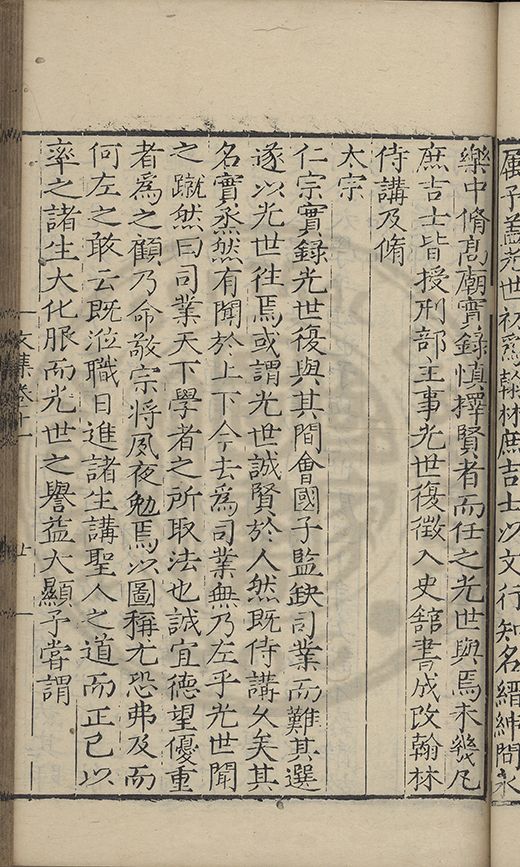 厲予葢光世初爲翰林庶吉士以文行知名縉紳間永
樂中脩髙廟實錄慎擇賢者而任之光世與焉未幾凡
庶吉士皆授刑部主事光世復徵入史舘書成改翰林
侍講及脩
太宗
仁宗實録光世復與其間會國子監缺司業而難其選
遂以光世往焉或謂光世誠賢於人然既侍講乆矣其
名實烝然有聞於上下今去爲司業無乃左乎光世聞
之蹴然曰司業天下學者之所取法也誠宜德望優重
者爲之顧乃命敬宗將夙夜勉焉以圖稱尤恐弗及而
何左之敢云既涖職日進諸生講聖人之道而正己以
率之諸生大化服而光世之譽益大顯予嘗謂
文集卷十一